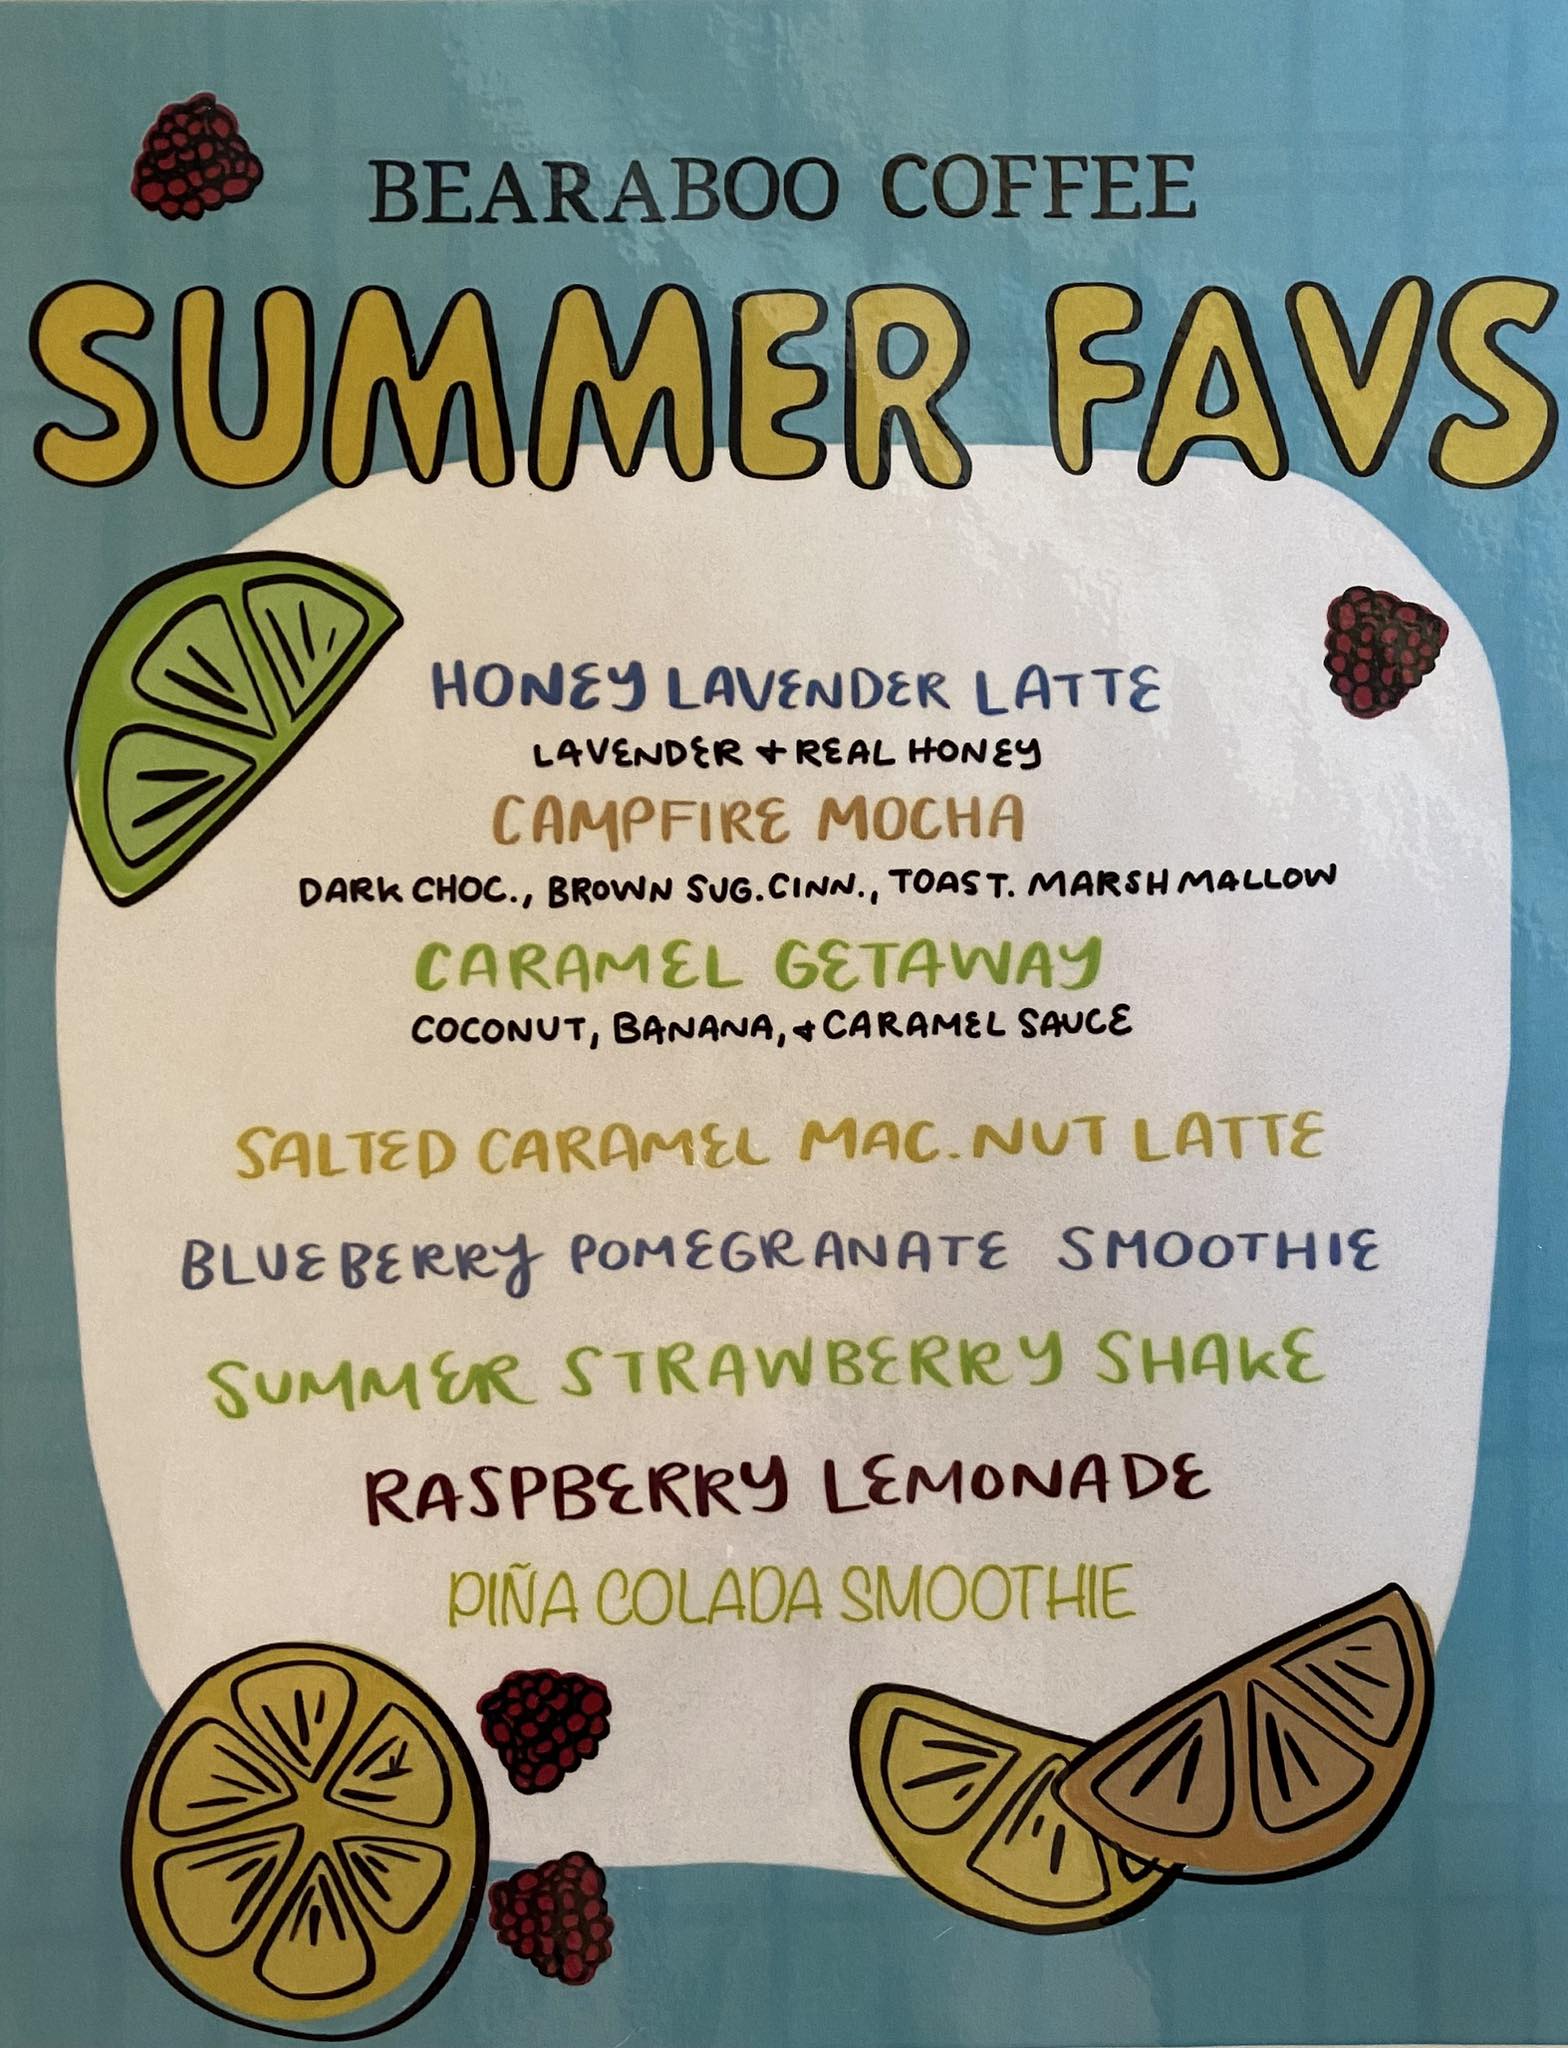 BEARABOO COFFEE
SUMMER FAVS
HONEY LAVENDER LATTE
LAVENDER + REAL HONEY
CAMPFIRE MOCHA
DARK CHOC., BROWN SUG.CINN., TOAST. MARSHMALLOW
CARAMEL GETAWAY
COCONUT, BANANA, + CARAMEL SAUCE
SALTED CARAMEL MAC. NUT LATTE
BLUEBERRY POMEGRANATE SMOOTHIE
SUMMER STRAWBERRY SHAKE
RASPBERRY LEMONADE
PIÑA COLADA SMOOTHIE